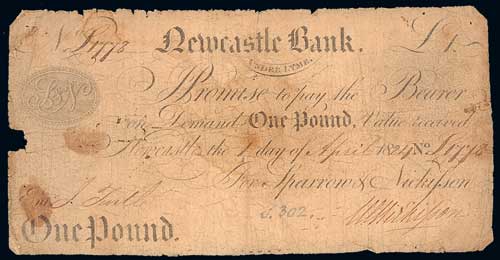 Nº L1778 Newcastle Bank. £1.
UNDER LYME.
S&N
I Promise to pay the Bearer
on Demand One Pound, Value received
Newcastle the 1 day of April 1824 Nº L1778
For Sparrow & Nickisson
Ent. J.
S. 302. WNickisson
One Pound.